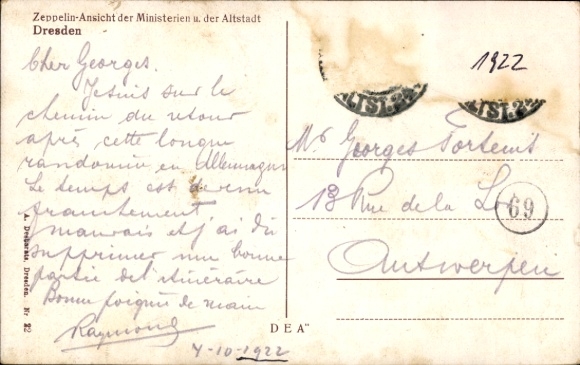 Zeppelin-Ansicht der Ministerien u. der Altstadt
Dresden
Cher Georges.
Je suis sur le
chemin du retour
après cette longue
randonnée en Allemagne
Le temps est devenu
franchement
mauvais et j'ai dû
supprimer une bonne
partie de l'itinéraire
Bonne poignée de main
Raymond
7-10-1922
A. Dresden. Nr 22
DEA"
1922
ALTST. 24
ALTST. 24
Mr Georges
18 Rue de la Loi
69
Antwerpen